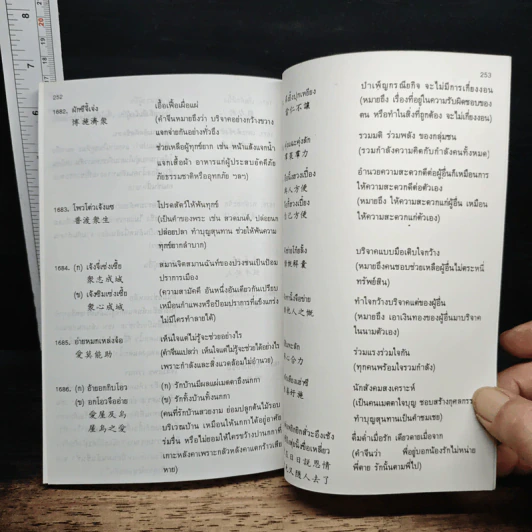 252
1682. ผักซีจี้เจ่ง
博施濟眾
เอื้อเฟื้อเผื่อแผ่
(คำจีนหมายถึงว่า บริจาคอย่างกว้างขวาง
แจกจ่ายกันอย่างทั่วถึง
ช่วยเหลือผู้ทุกข์ยาก เช่น หน้าแล้งแจกน้ำ
แจกเสื้อผ้า อาหารแก่ผู้ประสบอัคคีภัย
ภัยธรรมชาติหรืออุทกภัย ฯลฯ)
1683. โพวโต่วเจ้งแซ
普渡眾生
โปรดสัตว์ให้พ้นทุกข์
(เป็นคำของพระ เช่น สวดมนต์, ปล่อยนก
ปล่อยปลา ทำบุญสุนทาน ช่วยให้พ้นความ
ทุกข์ยากลำบาก)
1684. (ก) เจ้งจี่เซ่งเซี้ย
眾志成城
(ข) เจ้งซิมเซ่งเซี้ย
眾心成城
สมานจิตสมานฉันท์ของปวงชนเป็นป้อม
ปราการเมือง
(ความสามัคคี อันหนึ่งอันเดียวกันเปรียบ
เหมือนกำแพงหรือป้อมปราการที่แข็งแกร่ง
ไม่มีใครทำลายได้)
1685. อ่ายหมกเหล่งจ้อ
愛莫能助
เห็นใจแต่ไม่รู้จะช่วยอย่างไร
(คำจีนแปลว่า เห็นใจแต่ไม่รู้จะช่วยได้อย่างไร
เพราะกำลังและสิ่งแวดล้อมไม่อำนวย)
1686. (ก) อ้ายอกกิบโอว
(ข) อกโอวจืออ่าย
愛屋及烏
屋烏之愛
(ก) รักบ้านมีผลแผ่เมตตาถึงนกกา
(ข) รักทั้งบ้านทั้งนกกา
(คนที่รักบ้านสวยงาม ย่อมปลูกต้นไม้รอบ
บริเวณบ้าน เหมือนให้นกกาได้อยู่อาศัย
ร่มรื่น หรือไม่ยอมให้ใครขว้างปานกกาที่
เกาะหลังคาเพราะกลัวหลังคาแตกร้าวเสีย
หาย)
253
บำเพ็ญกรณียกิจ จะไม่มีการเกี่ยงงอน
(หมายถึง เรื่องที่อยู่ในความรับผิดชอบของ
ตน หรือทำในสิ่งที่ถูกต้อง จะไม่เกี่ยงงอน)
仁不讓
รวมมติ ร่วมพลัง ของกลุ่มชน
(รวมกำลังความคิดกับกำลังคนทั้งหมด)
策群力
อำนวยความสะดวกดีต่อผู้อื่นก็เหมือนการ
ให้ความสะดวกดีต่อตัวเอง
(หมายถึง ให้ความสะดวกแก่ผู้อื่น เหมือน
ให้ความสะดวกแก่ตัวเอง)
人方便
己方便
บริจาคแบบมือเติบใจกว้าง
(หมายถึงคนชอบช่วยเหลือผู้อื่นไม่ตระหนี่
ทรัพย์สิน)
慨解囊
ทำใจกว้างบริจาคแต่ของผู้อื่น
(หมายถึง เอาเงินทองของผู้อื่นมาบริจาค
ในนามตัวเอง)
他人之慨
ร่วมแรงร่วมใจกัน
(ทุกคนพร้อมใจรวมกำลัง)
心合力
นักสังคมสงเคราะห์
(เป็นคนเมตตาใจบุญ ชอบสร้างกุศลกรรม
ทำบุญสุนทานเป็นคำชมเชย)
善好施
ดื่มด่ำเมื่อรัก เดียวดายเมื่อจาก
(คำจีนว่า พี่อยู่บอกน้องรักไม่หน่าย
พี่ตาย รักนั้นตามพี่ไป)
日日說思情
又隨人去了